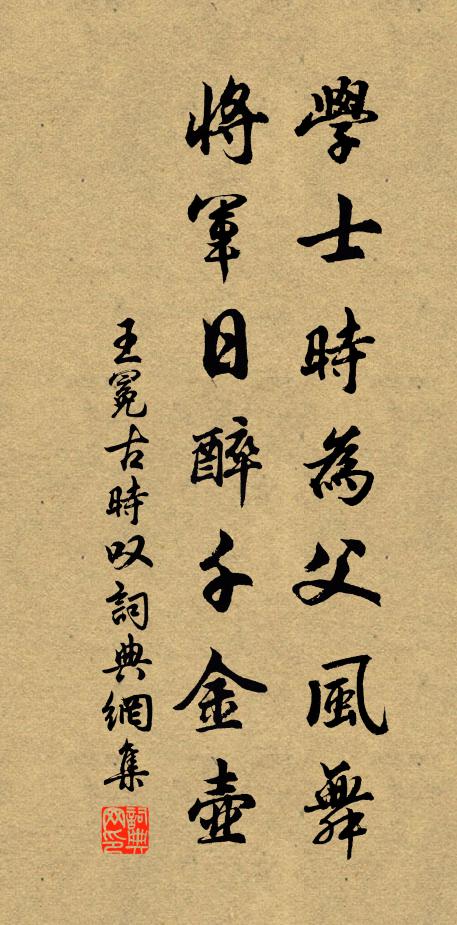 學士時為父風舞
將軍日醉千金壺
王冕古時叹詞典網集
詞典網印